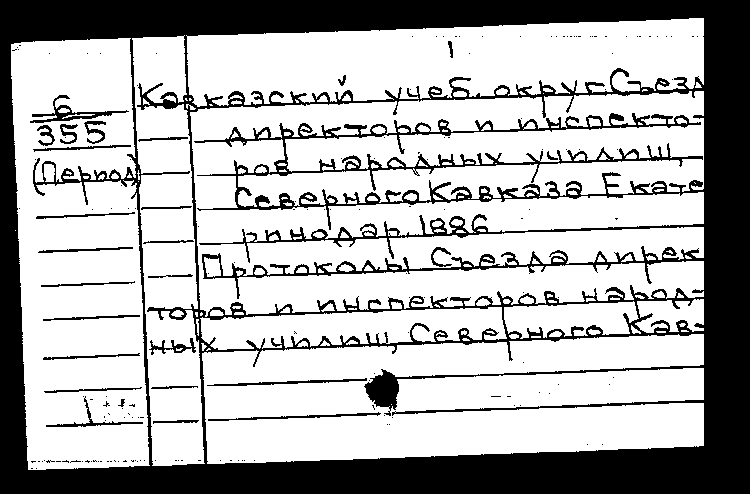 1
Кавказский учеб. округ. Съезд
6
355
(Период)
директоров и инспекто-
ров народных училищ,
Северного Кавказа Екате
ринодар. 1886
Протоколы Съезда дирек
торов и инспекторов народ-
ных училищ, Северного Кав-